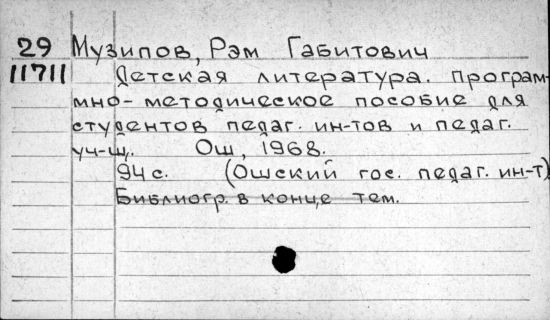 29 Музипов, Рэм Габитович
11711 Детская литература. Програм-
мно-методическое пособие для
студентов педаг. ин-тов и педаг.
уч-щ. Ош, 1968.
94 с. (Ошский гос. педаг. ин-т)
Библиогр. в конце тем.